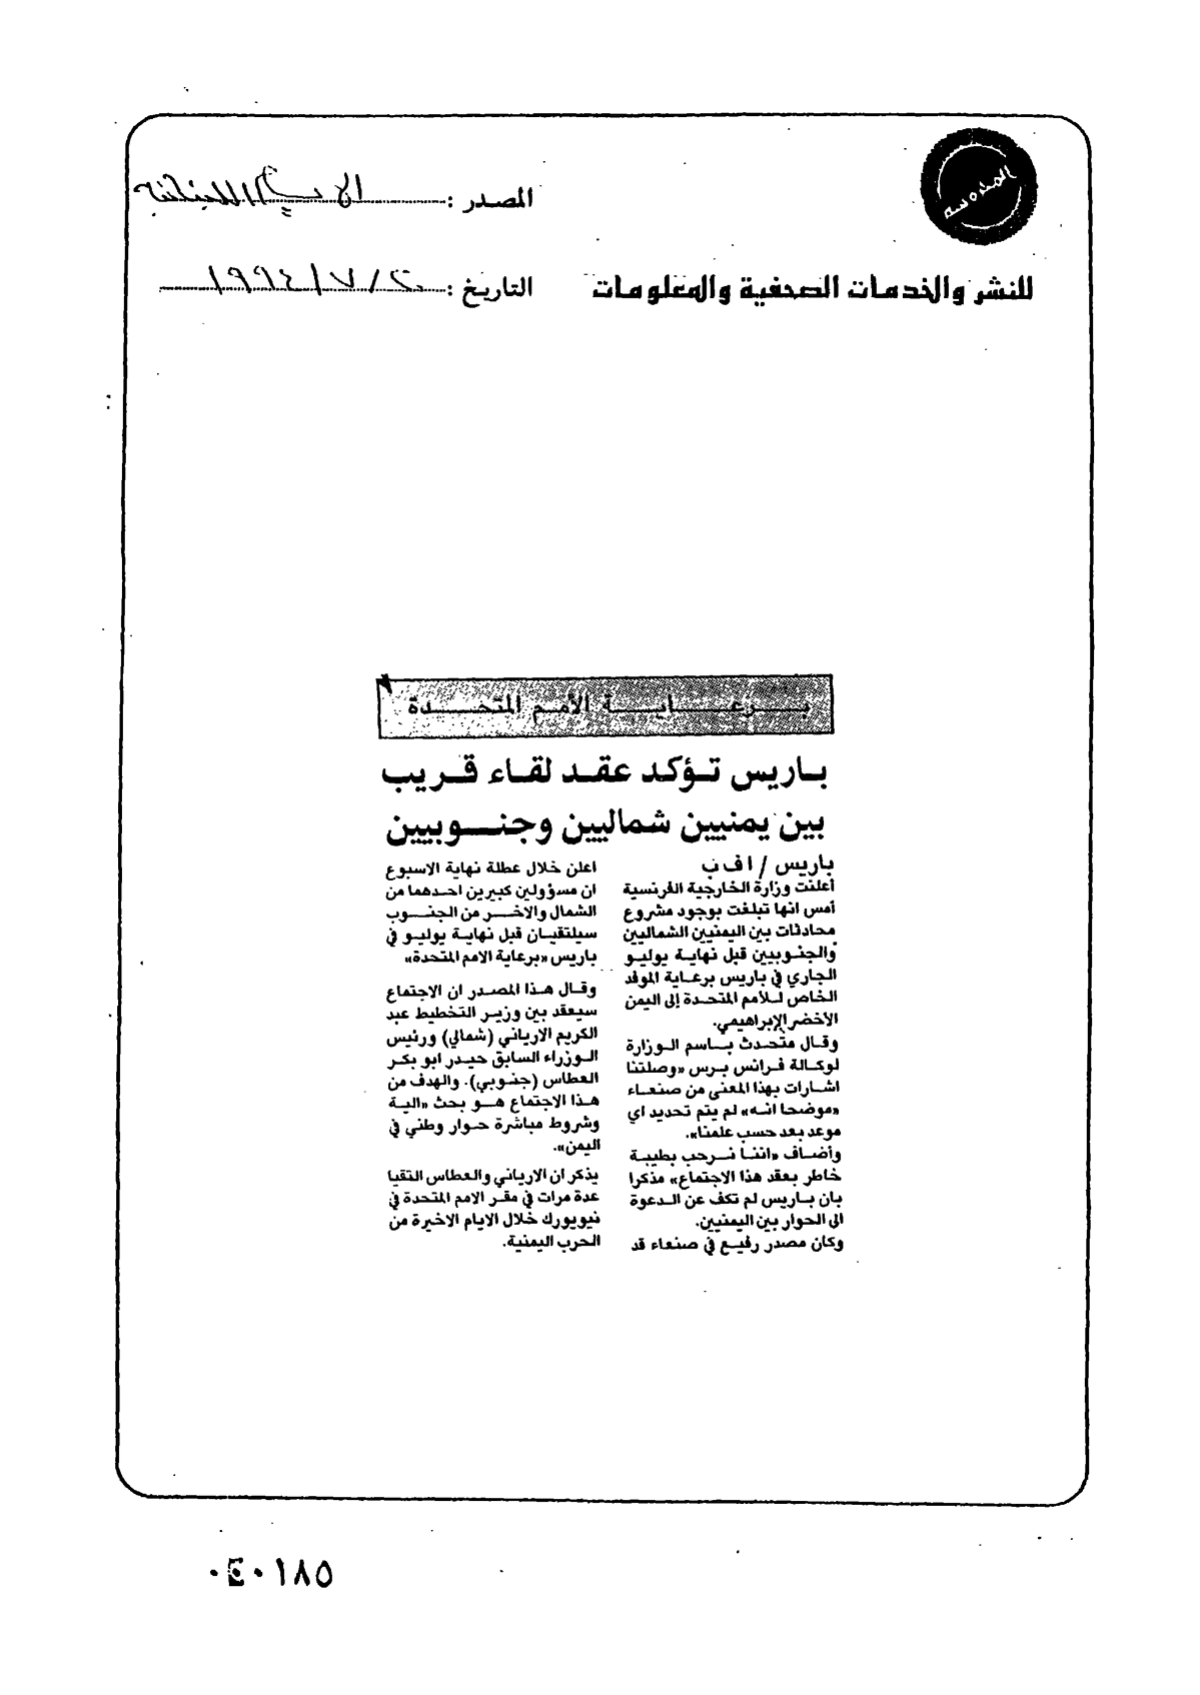 المحروسة
للنشر والخدمات الصحفية والمعلومات
المصدر : اللبنانية
التاريخ : ٢٠ / ٧ / ١٩٩٤
برعاية الأمم المتحدة
باريس تؤكد عقد لقاء قريب
بين يمنيين شماليين وجنوبيين
باريس / ا ف ب
أعلنت وزارة الخارجية الفرنسية
أمس انها تبلغت بوجود مشروع
محادثات بين اليمنيين الشماليين
والجنوبيين قبل نهاية يوليو
الجاري في باريس برعاية الموفد
الخاص للأمم المتحدة إلى اليمن
الأخضر الإبراهيمي.
وقال متحدث باسم الوزارة
لوكالة فرانس برس «وصلتنا
اشارات بهذا المعنى من صنعاء
«موضحا انه» لم يتم تحديد اي
موعد بعد حسب علمنا».
وأضاف «اننا نرحب بطيبة
خاطر بعقد هذا الاجتماع» مذكرا
بان باريس لم تكف عن الدعوة
الى الحوار بين اليمنيين.
وكان مصدر رفيع في صنعاء قد
اعلن خلال عطلة نهاية الاسبوع
ان مسؤولين كبيرين احدهما من
الشمال والاخر من الجنوب
سيلتقيان قبل نهاية يوليو في
باريس «برعاية الامم المتحدة»
وقال هذا المصدر ان الاجتماع
سيعقد بين وزير التخطيط عبد
الكريم الارياني (شمالي) ورئيس
الوزراء السابق حيدر ابو بكر
العطاس (جنوبي). والهدف من
هذا الاجتماع هو بحث «الية
وشروط مباشرة حوار وطني في
اليمن».
يذكر ان الارياني والعطاس التقيا
عدة مرات في مقر الامم المتحدة في
نيويورك خلال الايام الاخيرة من
الحرب اليمنية.
٠٤٠١٨٥